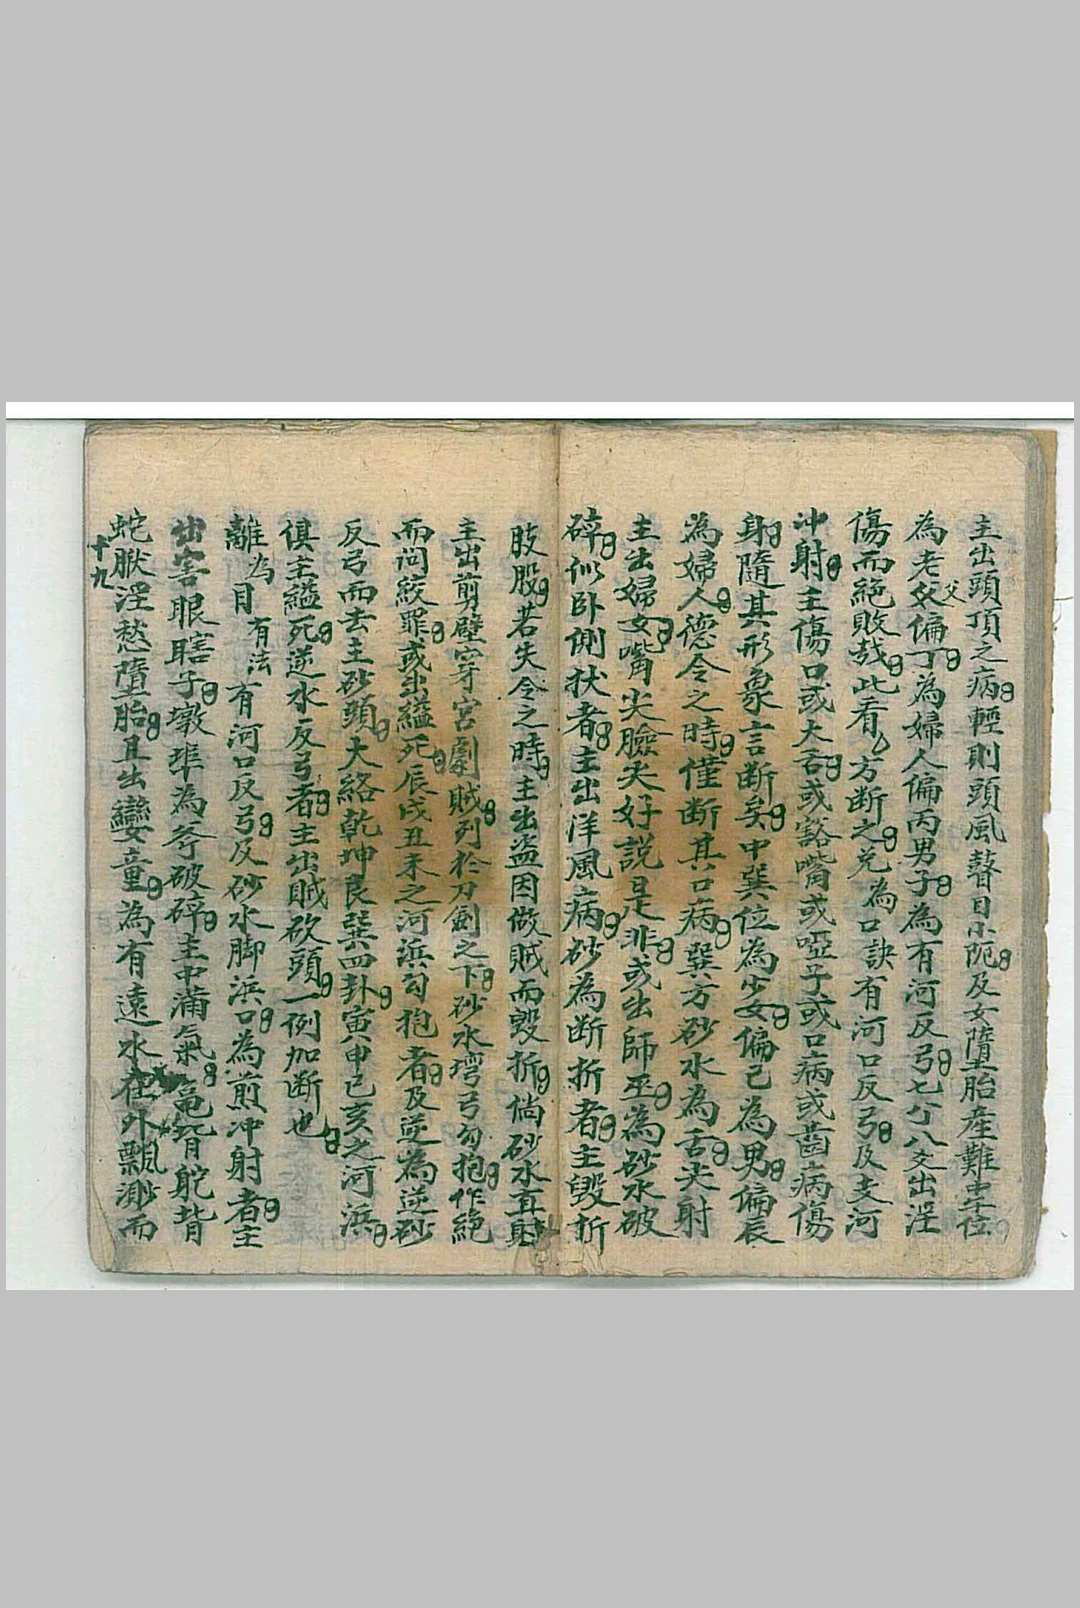 主出頭頂之病輕則頭風瞽目小阨及女墮胎產難中午位
為老父偏丁為婦人偏丙男子為有河反弓七丁八交出淫
父
傷而絕敗哉此看方断之兌為口訣有河口反弓及支河
冲射主傷口或大舌或豁嘴或啞子或口病或齒病傷
身隨其形象言断矣中巽位為少女偏己為男偏辰
為婦人德令之時僅断其口病巽方砂水為舌尖射
主出婦女嘴尖臉尖好説是非或出師巫為砂水破
碎似卧側状者主出洋風病砂為断折者主毁折
肢股若失令之時主出盗因做賊而毁折倘砂水直射
主出剪壁穿宮劇賊列於刀劍之下砂水彎弓勾抱作絕
而问絞罪或出縊死辰戌丑未之河浜勾抱者及逆為逆砂
反弓而去主砂頭大絡乾坤艮巽四卦寅申巳亥之河浜
俱主縊死逆水反弓者主出賊砍頭一例加断也
離為目有法有河口反弓及砂水脚浜口為煎冲射者主
出害眼瞎子墩埠為斧破碎主中滿氣鼋背駝背
蛇厭淫愁墮胎且出孌童為有遠水在外飄渺而
十九